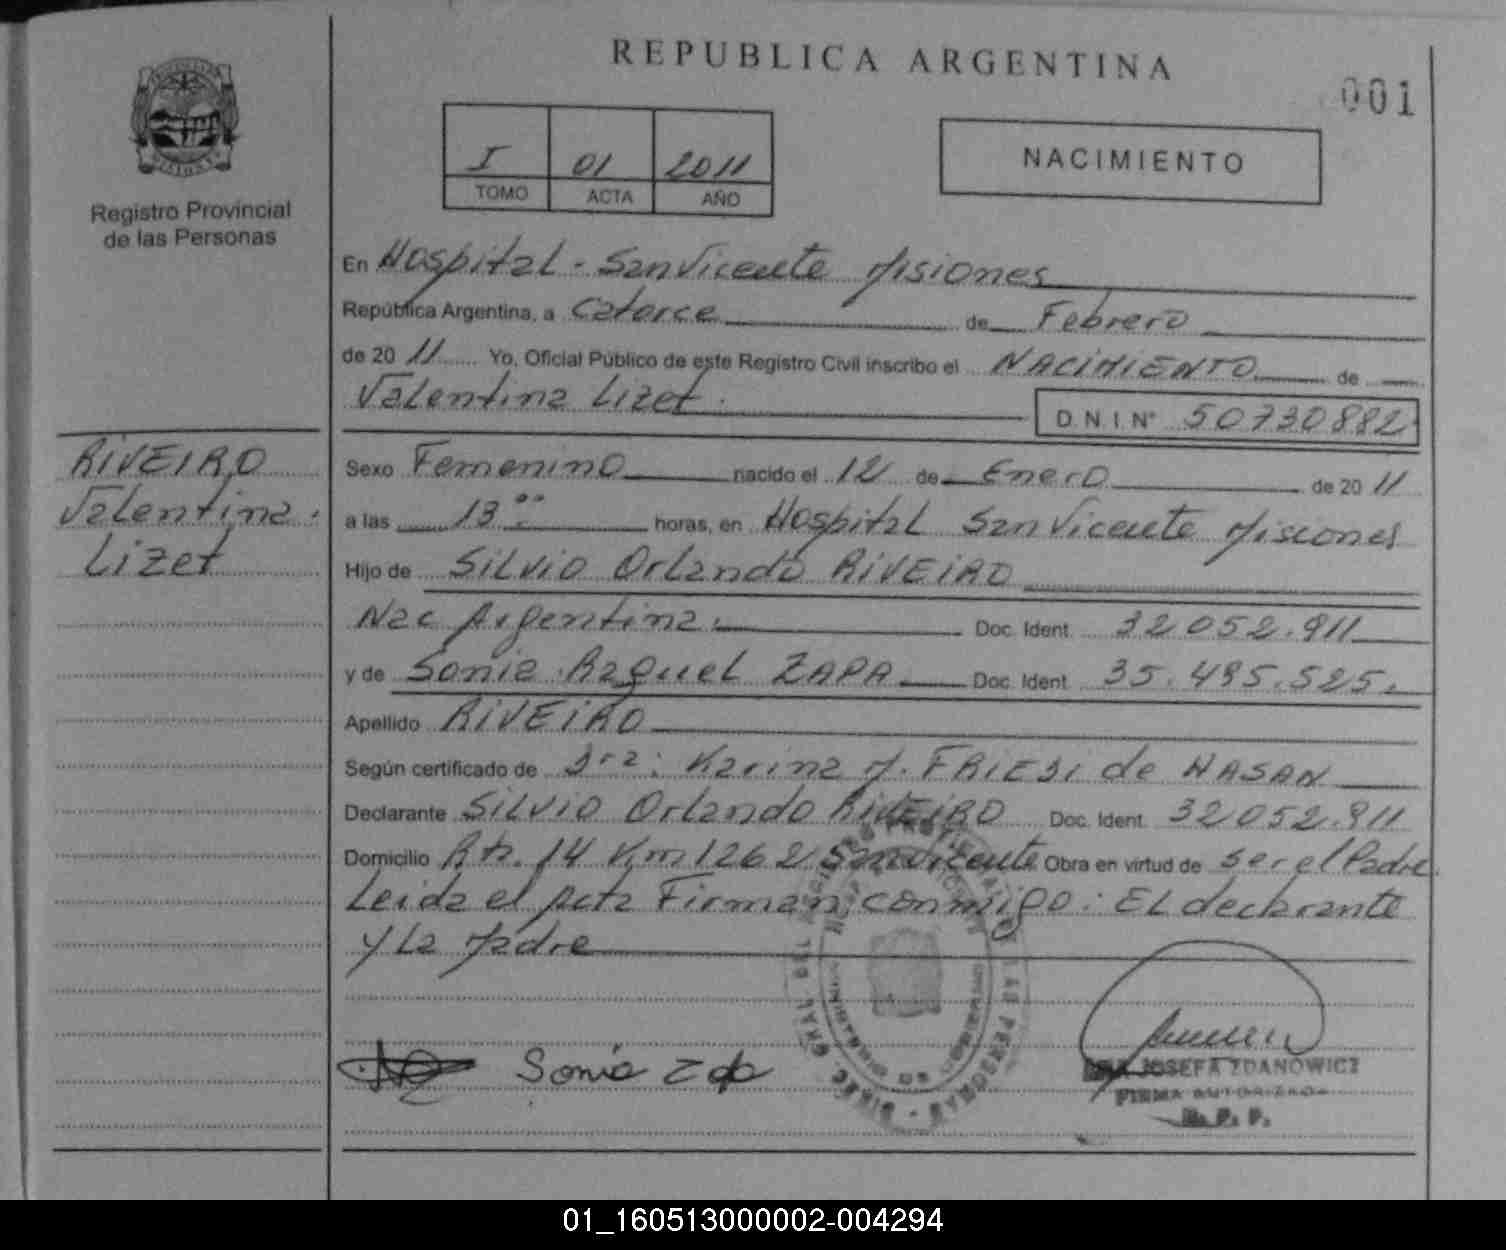 REPUBLICA ARGENTINA
001
I 01 2011
TOMO ACTA AÑO
NACIMIENTO
Registro Provincial
de las Personas
En Hospital - San Vicente Misiones
República Argentina, a Catorce de Febrero
de 20 11 Yo, Oficial Público de este Registro Civil inscribo el NACIMIENTO de
Valentina Lizet.
D.N.I. Nº 50730882
RIVEIRO
Valentina
Lizet
Sexo Femenino nacido el 12 de Enero de 20 11
a las 13 horas, en Hospital San Vicente Misiones
Hijo de Silvio Orlando RIVEIRO
Nac Argentina. Doc. Ident. 32052.911
y de Sonia Raquel ZAPA Doc. Ident. 35.495.525.
Apellido RIVEIRO
Según certificado de Karina M. de HASAN
Declarante Silvio Orlando RIVEIRO Doc. Ident. 32052.911
Domicilio Rta. 14 Km 1262 San Vicente Obra en virtud de ser el Padre.
Leida el Acta Firman conmigo: El declarante
y la Madre
Sonia
JOSEFA ZDANOWICZ
FIRMA AUTORIZADA
R. P. P.
01_160513000002-004294